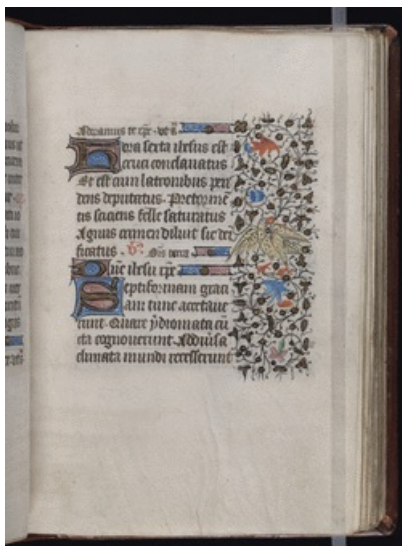 Adoramus te xpe. ve n
Hora sexta ihesus est
cruci conclavatus
Et est cum latronibus pen
dens deputatus. Pre tormē
tis sitiens felle saturatus
Agnus crimen diluit sic dei
ficatus
Dne ihesu xpe
Septiformam graci
am tunc acceptave
runt. Quare ydiomata cū
cta cognoverunt. Ad diversa
climata mundi recesserunt